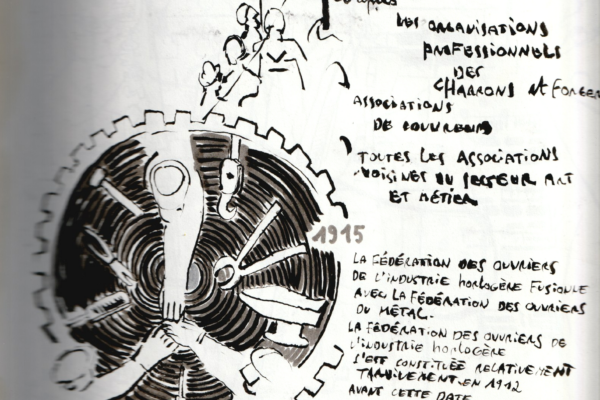 LES ORGANISATIONS
PROFESSIONNELS
DES
CHARRONS ET FORGER
ASSOCIATIONS
DE COUVREURS
TOUTES LES ASSOCIATIONS
VOISINES DU SECTEUR ART
ET MÉTIER
1915
LA FÉDÉRATION DES OUVRIERS
DE L'INDUSTRIE HORLOGÈRE FUSIONNE
AVEC LA FÉDÉRATION DES OUVRIERS
DU MÉTAL.
LA FÉDÉRATION DES OUVRIERS DE
L'INDUSTRIE HORLOGÈRE
S'EST CONSTITUÉE RELATIVEMENT
TARDIVEMENT EN 1912
AVANT CETTE DATE